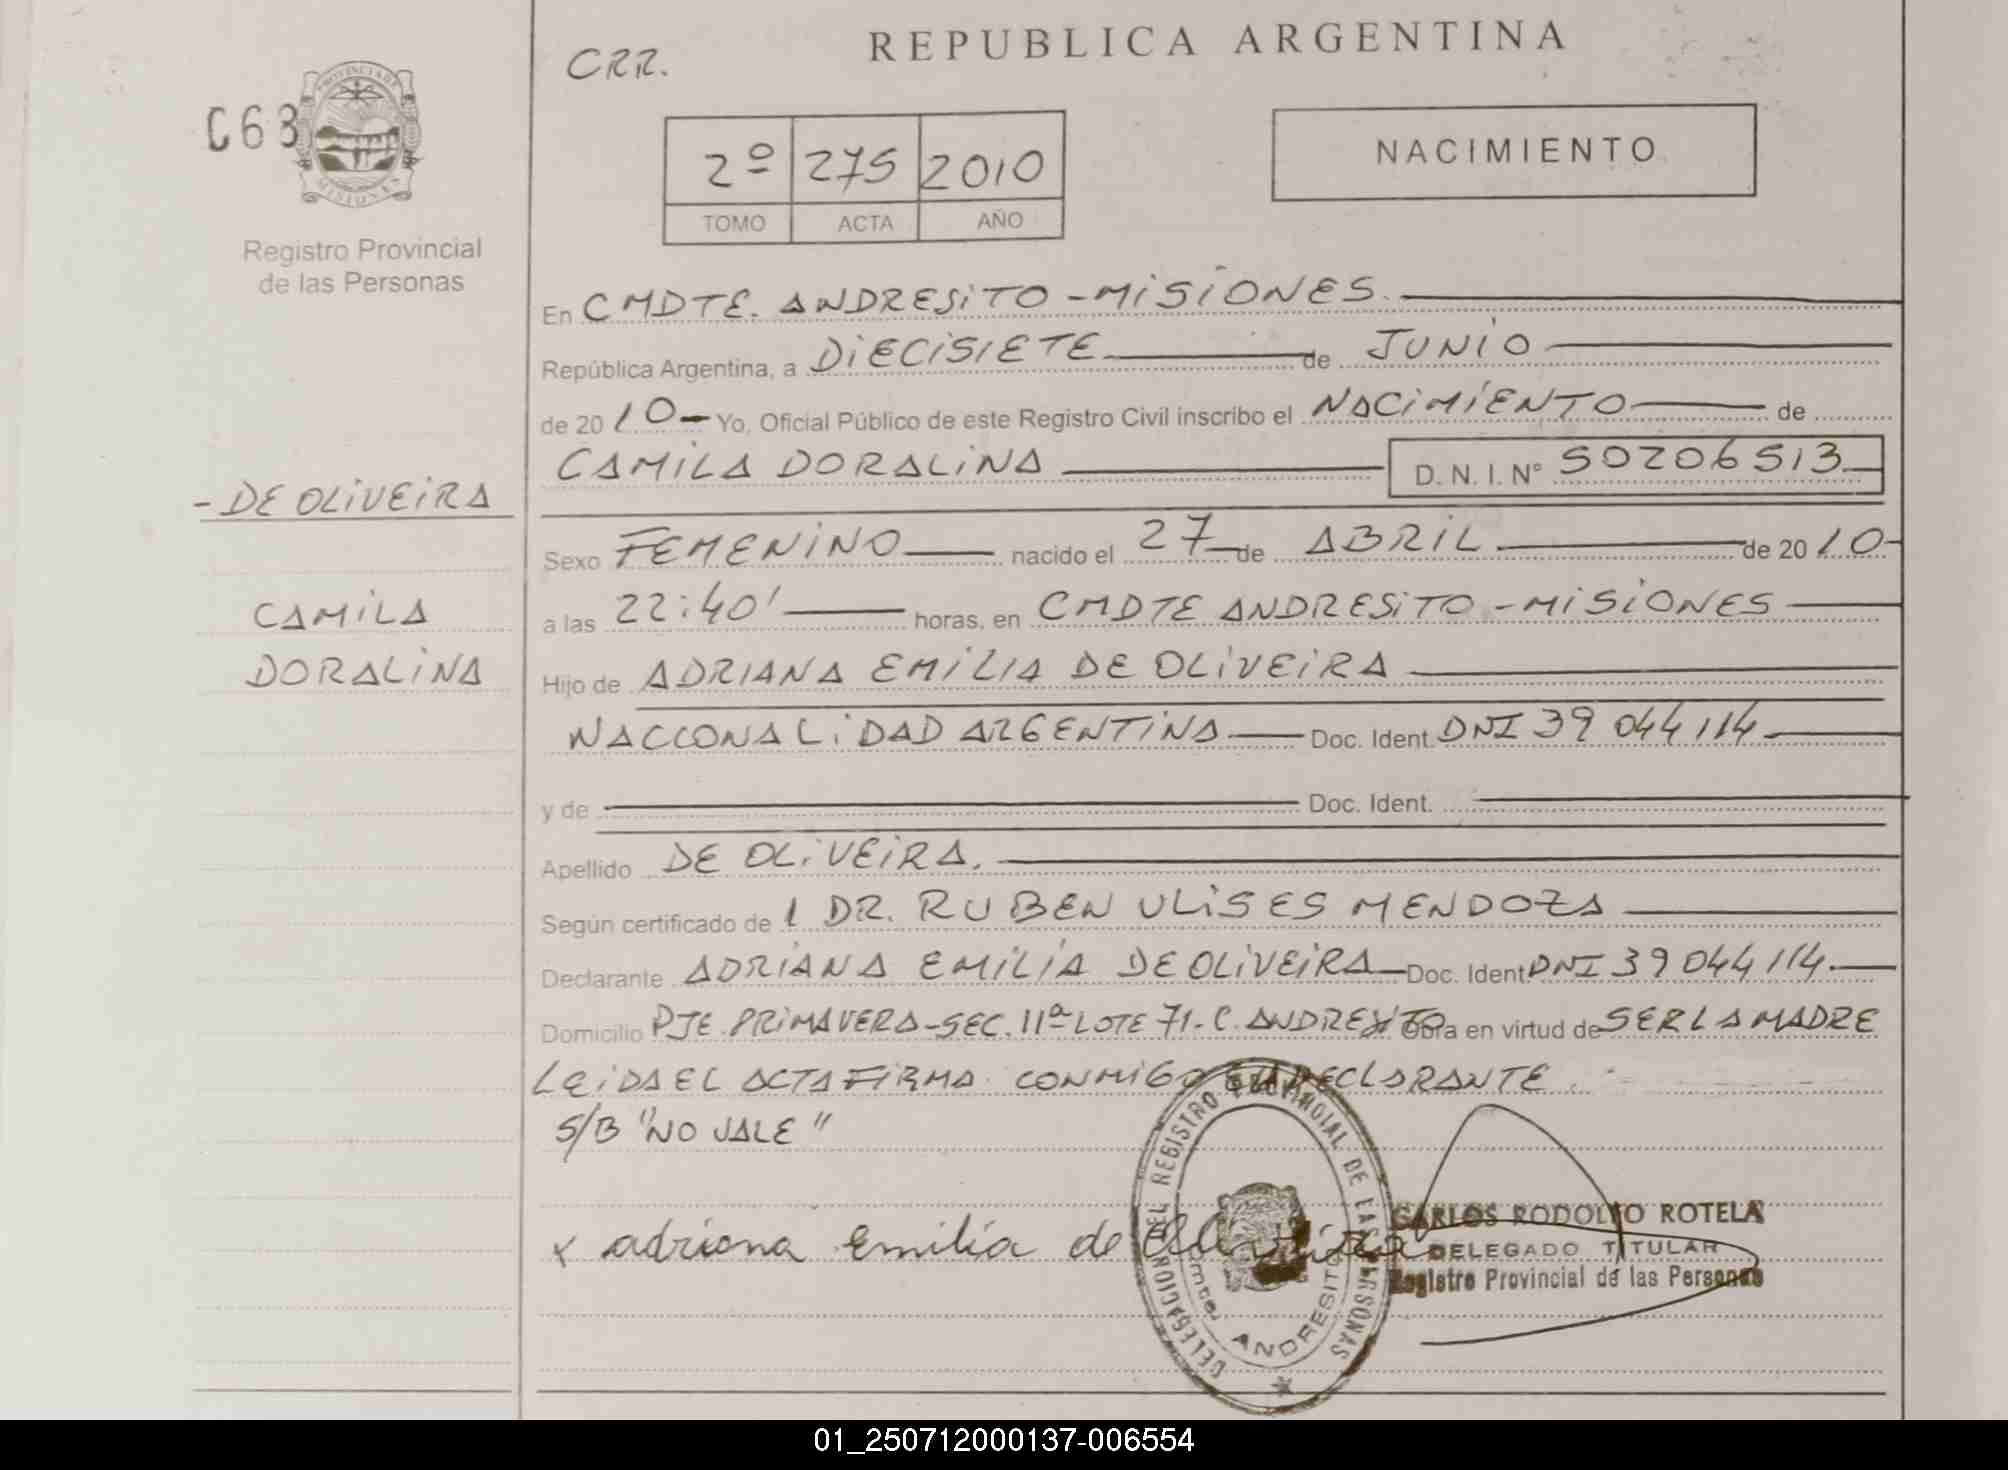 CRR.
REPUBLICA ARGENTINA
C63
PROVINCIA DE MISIONES
Registro Provincial
de las Personas
2º 275 2010
TOMO ACTA AÑO
NACIMIENTO
En CMDTE. ANDRESITO - MISIONES.
República Argentina, a DIECISIETE de JUNIO
de 2010 - Yo, Oficial Público de este Registro Civil inscribo el NACIMIENTO de
CAMILA DORALINA D. N. I. Nº 50206513
- DE OLIVEIRA
CAMILA
DORALINA
Sexo FEMENINO nacido el 27 de ABRIL de 2010
a las 22:40' horas, en CMDTE ANDRESITO - MISIONES
Hijo de ADRIANA EMILIA DE OLIVEIRA
NACCONALIDAD ARGENTINA Doc. Ident. DNI 39 044 114
y de Doc. Ident.
Apellido DE OLIVEIRA.
Según certificado de 1 DR. RUBEN ULISES MENDOZA
Declarante ADRIANA EMILIA DE OLIVEIRA Doc. Ident. DNI 39 044 114.
Domicilio PJE. PRIMAVERA - SEC. 11ª LOTE 71 - C. ANDRESITO Obra en virtud de SER LA MADRE
LEIDA EL ACTA FIRMA CONMIGO DECLARANTE
S/B "NO VALE"
x adriana Emilia de Oliveira
DELEGACION DEL REGISTRO PROVINCIAL DE LAS PERSONAS
ANDRESITO
CARLOS RODOLFO ROTELA
DELEGADO TITULAR
Registro Provincial de las Personas
01_250712000137-006554